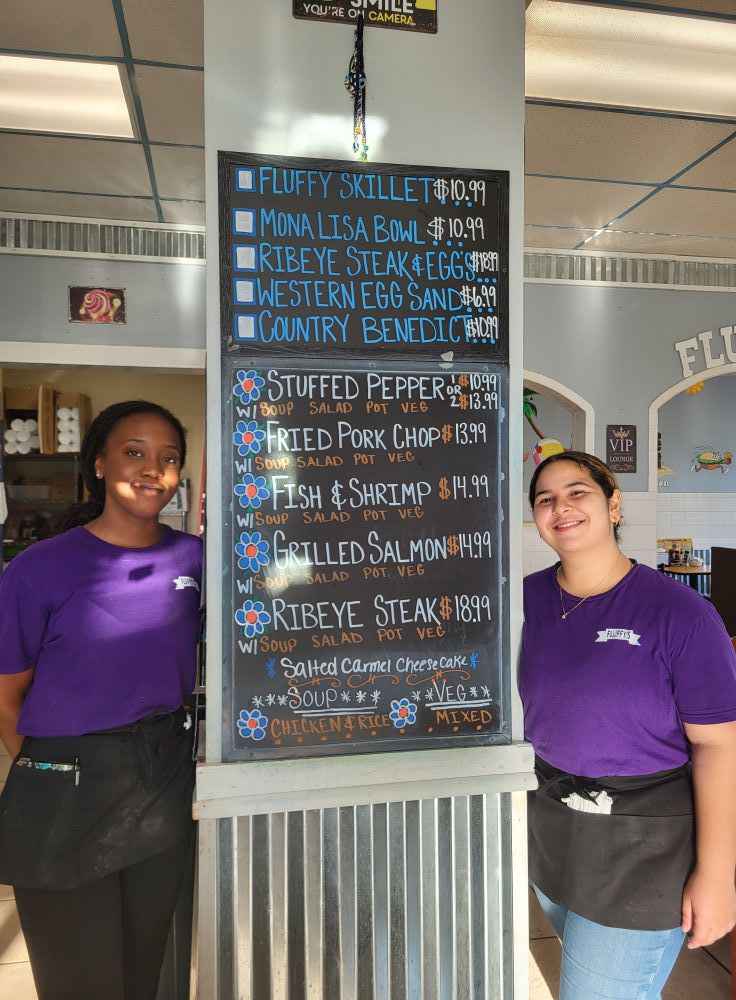 SMILE
YOU'RE ON CAMERA
FLUFFY SKILLET $10.99
MONA LISA BOWL $10.99
RIBEYE STEAK & EGG'S $18.99
WESTERN EGG SAND $6.99
COUNTRY BENEDICT $10.99
STUFFED PEPPER 1 $10.99
OR
2 $13.99
W/ SOUP SALAD POT VEG
FRIED PORK CHOP $13.99
W/ SOUP SALAD POT VEG
FISH & SHRIMP $14.99
W/ SOUP SALAD POT VEG
GRILLED SALMON $14.99
W/ SOUP SALAD POT VEG
RIBEYE STEAK $18.99
W/ SOUP SALAD POT VEG
*Salted Carmel Cheesecake*
***SOUP*** **VEG**
CHICKEN & RICE MIXED
FLU
VIP
LOUNGE
FLUFFY'S
FLUFFY'S